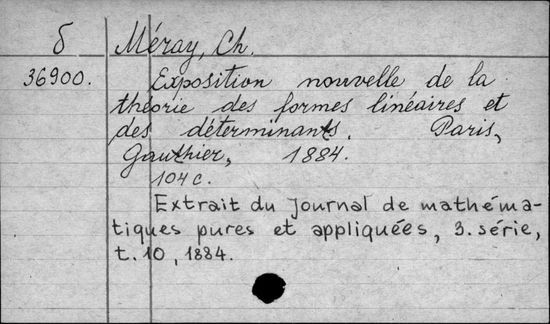 б Méray, Ch.
36900. Exposition nouvelle de la
théorie des formes linéaires et
des déterminants. Paris,
Gauthier, 1884.
104 c.
Extrait du Journal de mathéma-
tiques pures et appliquées, 3. série,
t. 10, 1884.